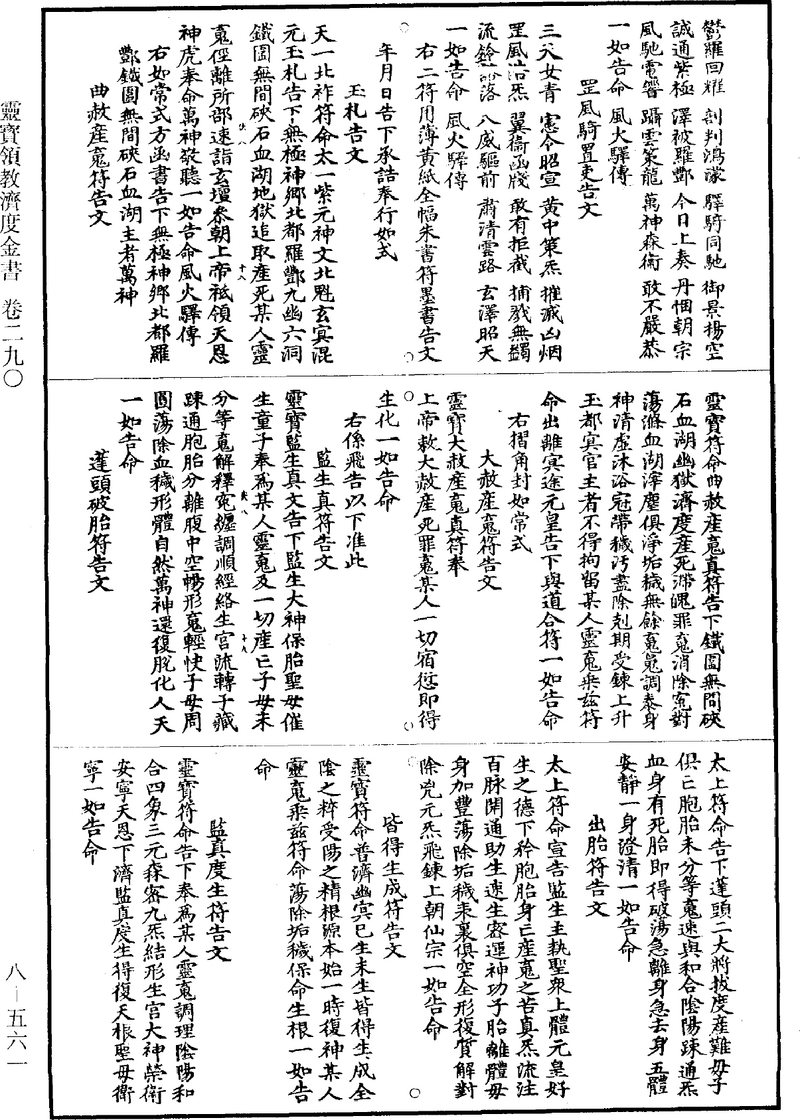 靈寶領教濟度金書　卷二九〇
八－五六一
鬱羅回耀　剖判鴻濛　驛騎同馳　御景楊空
誠通紫極　澤被羅酆　今日上奏　丹悃朝宗
風馳電響　躡雲策龍　萬神森衛　敢不嚴恭
一如告命　風火驛傳
罡風騎置吏告文
三天女青　憲令昭宣　黄中策炁　摧滅凶烟
罡風浩炁　翼衞函牋　敢有拒截　捕戮無蠲
流鈴　落　八威驅前　肅清雲路　玄澤昭天
一如告命　風火驛傳
右二符用薄黄紙全幅朱書符墨書告文
年月日告下承誥奉行如式
玉札告文
天一北祚符命太一紫元神文北魁玄冥混
元玉札告下無極神鄉北都羅酆九幽六洞
鐵圍無間硤石血湖地獄追取産死某人靈
䰟徑離所部速詣玄壇叅朝上帝祗領天恩
神虎奉命萬神敬聽一如告命風火驛傳
右如常式方函書告下無極神鄉北都羅
酆鐵圍無間硤石血湖主者萬神
曲赦産䰟符告文
靈寶符命曲赦産䰟真符告下鐵圍無間硤
石血湖幽獄濟度産死滯魄罪䰟消除寃對
蕩滌血湖滓塵俱淨垢穢無餘䰟𩲸調泰身
神清虚沐浴冠帶穢污盡除剋期受鍊上升
玉都冥官主者不得拘留某人靈䰟乘兹符
命出離冥途元皇告下與道合符一如告命
右摺角封如常式
大赦産䰟符告文
靈寶大赦産䰟真符奉
上帝敕大赦産死罪䰟某人一切宿愆即得
生化一如告命
右係飛告以下准此
監生真符告文
靈寶監生真文告下監生大神保胎聖母催
生童子奉爲某人靈䰟及一切産亡子母未
分等䰟解釋寃纏調順經絡生宮流轉子藏
疎通胞胎分離腹中空暢形䰟輕快子母周
圓蕩除血穢形體自然萬神還復脱化人天
一如告命
蓬頭破胎符告文
太上符命告下蓬頭二大將拔度産難母子
俱亡胞胎未分等䰟速與和合陰陽疎通炁
血身有死胎即得破蕩急離身急去身五體
安靜一身澄清一如告命
出胎符告文
太上符命宣告監生主執聖衆上體元皇好
生之德下矜胞胎身亡産䰟之苦真炁流注
百脉開通助生速生密運神功子胎離體母
身加豐蕩除垢穢表裏俱空全形復質解對
除兇元炁飛鍊上朝仙宗一如告命
皆得生成符告文
靈寶符命普濟幽冥已生未生皆得生成全
陰之粹受陽之精根源本始一時復神某人
靈䰟乘兹符命蕩除垢穢保命生根一如告
命
監真度生符告文
靈寶符命告下奉爲某人靈䰟調理陰陽和
合四象三元森密九炁結形生宮大神榮衛
安寧天恩下濟監真度生得復天根聖母衛
寧一如告命